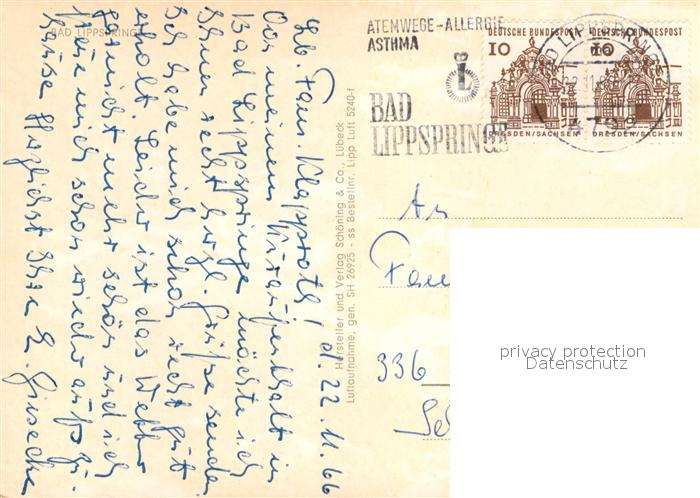 BAD LIPPSPRINGE
Lb. Fam. Klapproth! d. 22.11.66
Von meinem Kuraufenthalt in
Bad Lippspringe möchte ich
Ihnen recht herzl. Grüße senden.
Ich habe mich schon recht gut
erholt. Leider ist das Wetter
gar nicht mehr schön und ich
freue mich schon wieder auf zu
Hause Herzlichst Ihre E. Giesecke
Hersteller und Verlag Schöning & Co., Lübeck
Luftaufnahme, gen. SH 26925 - ss Bestellnr. Lipp Luft 5240-f
ATEMWEGE-ALLERGIE
ASTHMA
L
BAD
LIPPSPRINGE
DEUTSCHE BUNDESPOST
10
DRESDEN/SACHSEN
DEUTSCHE BUNDESPOST
10
DRESDEN/SACHSEN
BAD LIPPSPRINGE
An
Fam
336
privacy protection
Datenschutz